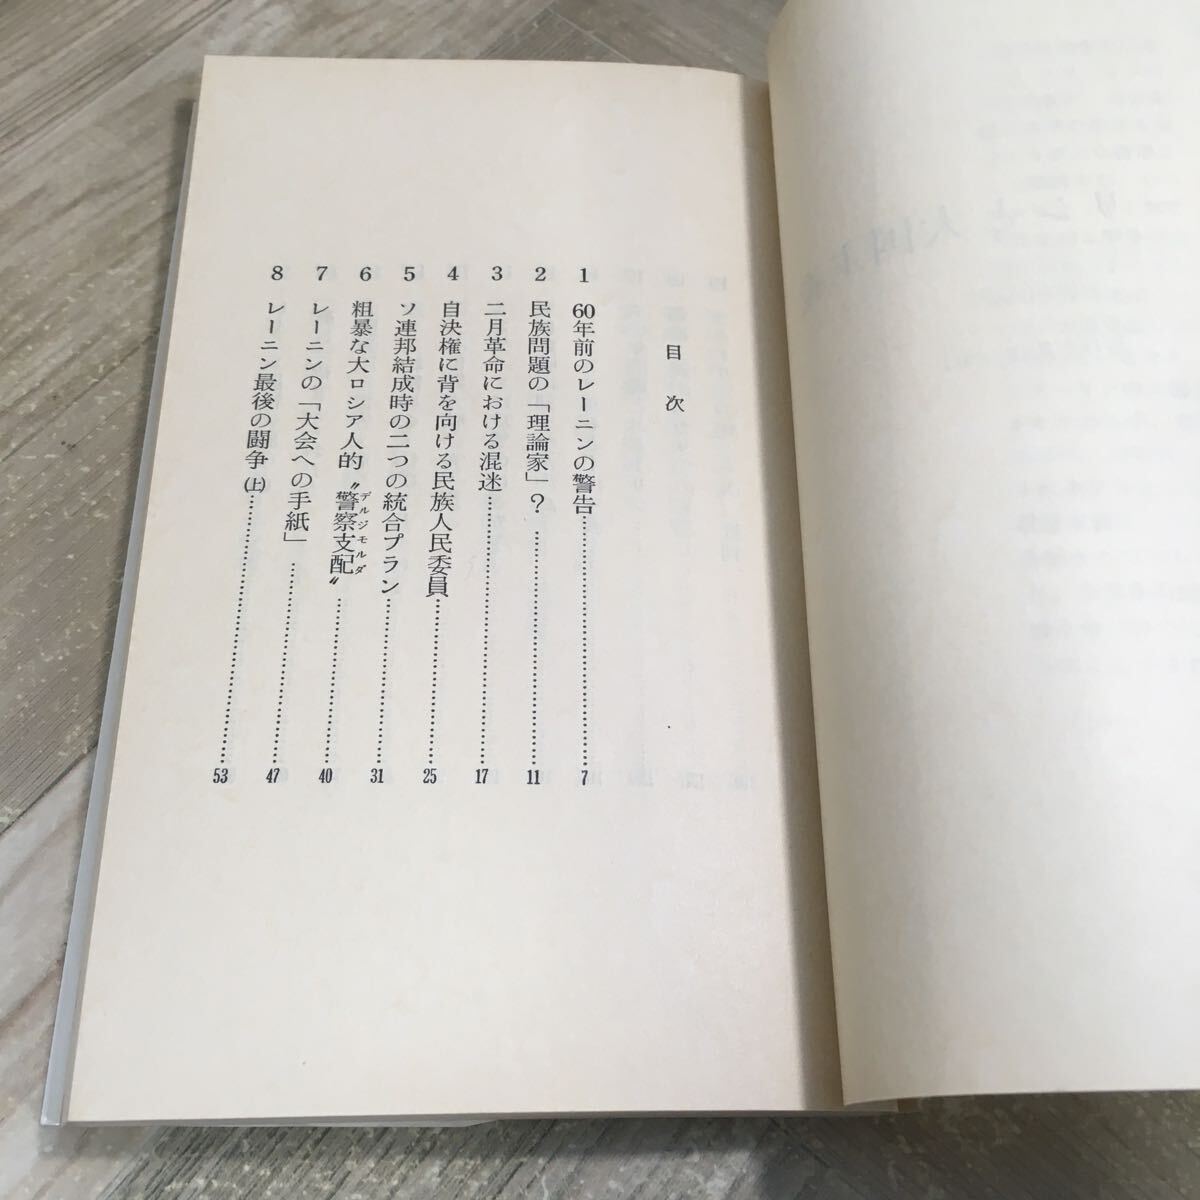 目次
1 60年前のレーニンの警告……………7
2 民族問題の「理論家」？……………11
3 二月革命における混迷……………17
4 自決権に背を向ける民族人民委員……………25
5 ソ連邦結成時の二つの統合プラン……………31
6 粗暴な大ロシア人的〝警察支配〟デルジモルダ……………40
7 レーニンの「大会への手紙」……………47
8 レーニン最後の闘争（上）……………53